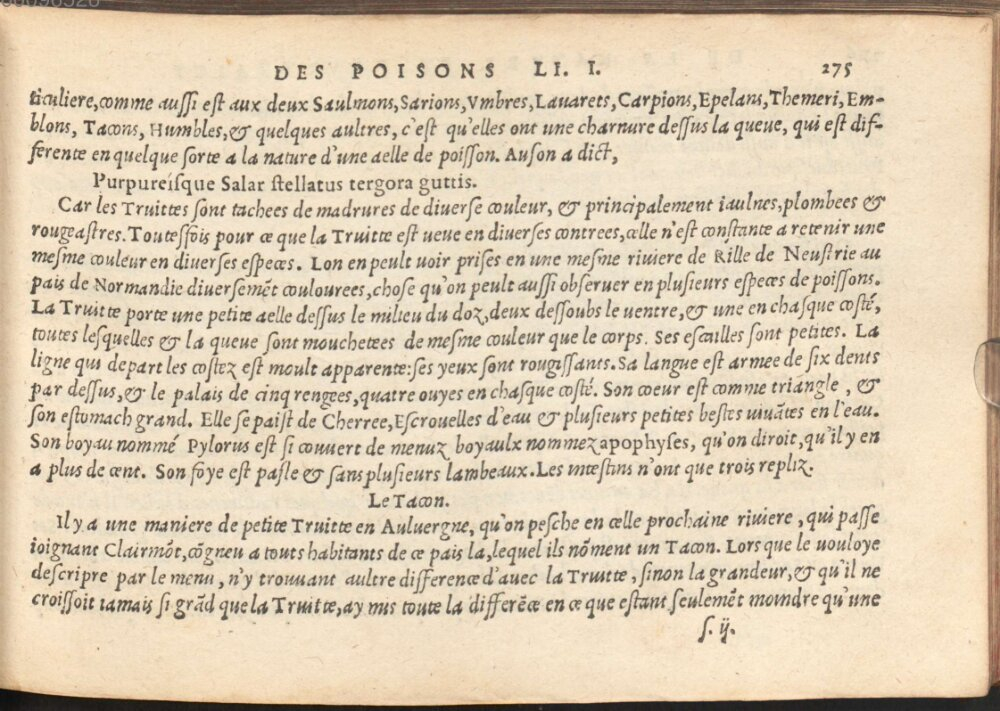 DES POISONS LI. I. 275
ticuliere, comme aussi est aux deux Saulmons, Sarions, Vmbres, Lauarets, Carpions, Epelans, Themeri, Em-
blons, Tacons, Humbles, & quelques aultres, c'est qu'elles ont une charnure dessus la queue, qui est dif-
ferente en quelque sorte a la nature d'une aelle de poisson. Auson a dict,
Purpureisque Salar stellatus tergora guttis.
Car les Truittes sont tachees de madrures de diverse couleur, & principalement iaulnes, plombees &
rougeastres. Toutesfois pour ce que la Truitte est veue en diverses contrees, celle n'est constante a retenir une
mesme couleur en diverses especes. Lon en peult voir prises en une mesme riviere de Rille de Neustrie au
pais de Normandie diversemẽt coulourees, chose qu'on peult aussi observer en plusieurs especes de poissons.
La Truitte porte une petite aelle dessus le milieu du doz, deux dessoubs le ventre, & une en chasque costé,
toutes lesquelles & la queue sont mouchetees de mesme couleur que le corps. Ses escailles sont petites. La
ligne qui depart les costez est moult apparente: ses yeux sont rougissants. Sa langue est armee de six dents
par dessus, & le palais de cinq rengees, quatre ouyes en chasque costé. Son coeur est comme triangle, &
son estomach grand. Elle se paist de Cherree, Escrouelles d'eau & plusieurs petites bestes vivãtes en l'eau.
Son boyau nommé Pylorus est si couvert de menuz boyaulx nommez apophyses, qu'on diroit, qu'il y en
a plus de cent. Son foye est pasle & sans plusieurs lambeaux. Les intestins n'ont que trois repliz.
Le Tacon.
Il y a une maniere de petite Truitte en Auluergne, qu'on pesche en celle prochaine riviere, qui passe
ioignant Clairmõt, cõgneu a touts habitants de ce pais la, lequel ils nõment un Tacon. Lors que le vouloye
descripre par le menu, n'y trouvant aultre difference d'avec la Truitte, sinon la grandeur, & qu'il ne
croissoit iamais si grãd que la Truitte, ay mis toute la differẽce en ce que estant seulemẽt moindre qu'une
s. ij.